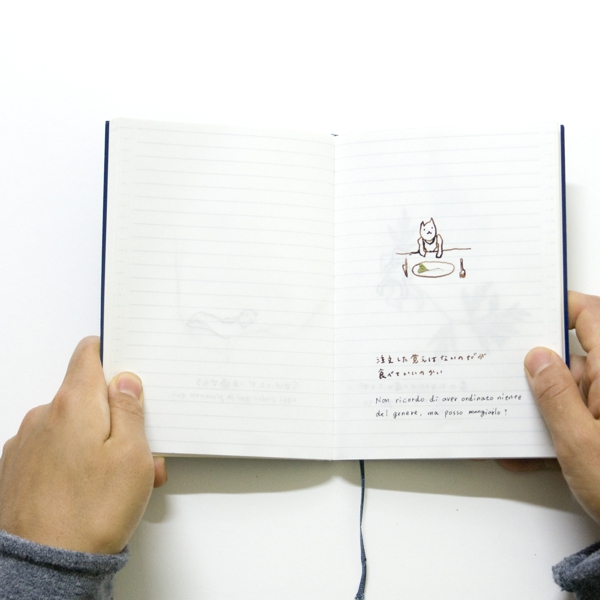 注文した覚えはないのですが
食べていいのかい
Non ricordo di aver ordinato niente
del genere, ma posso mangiarlo?